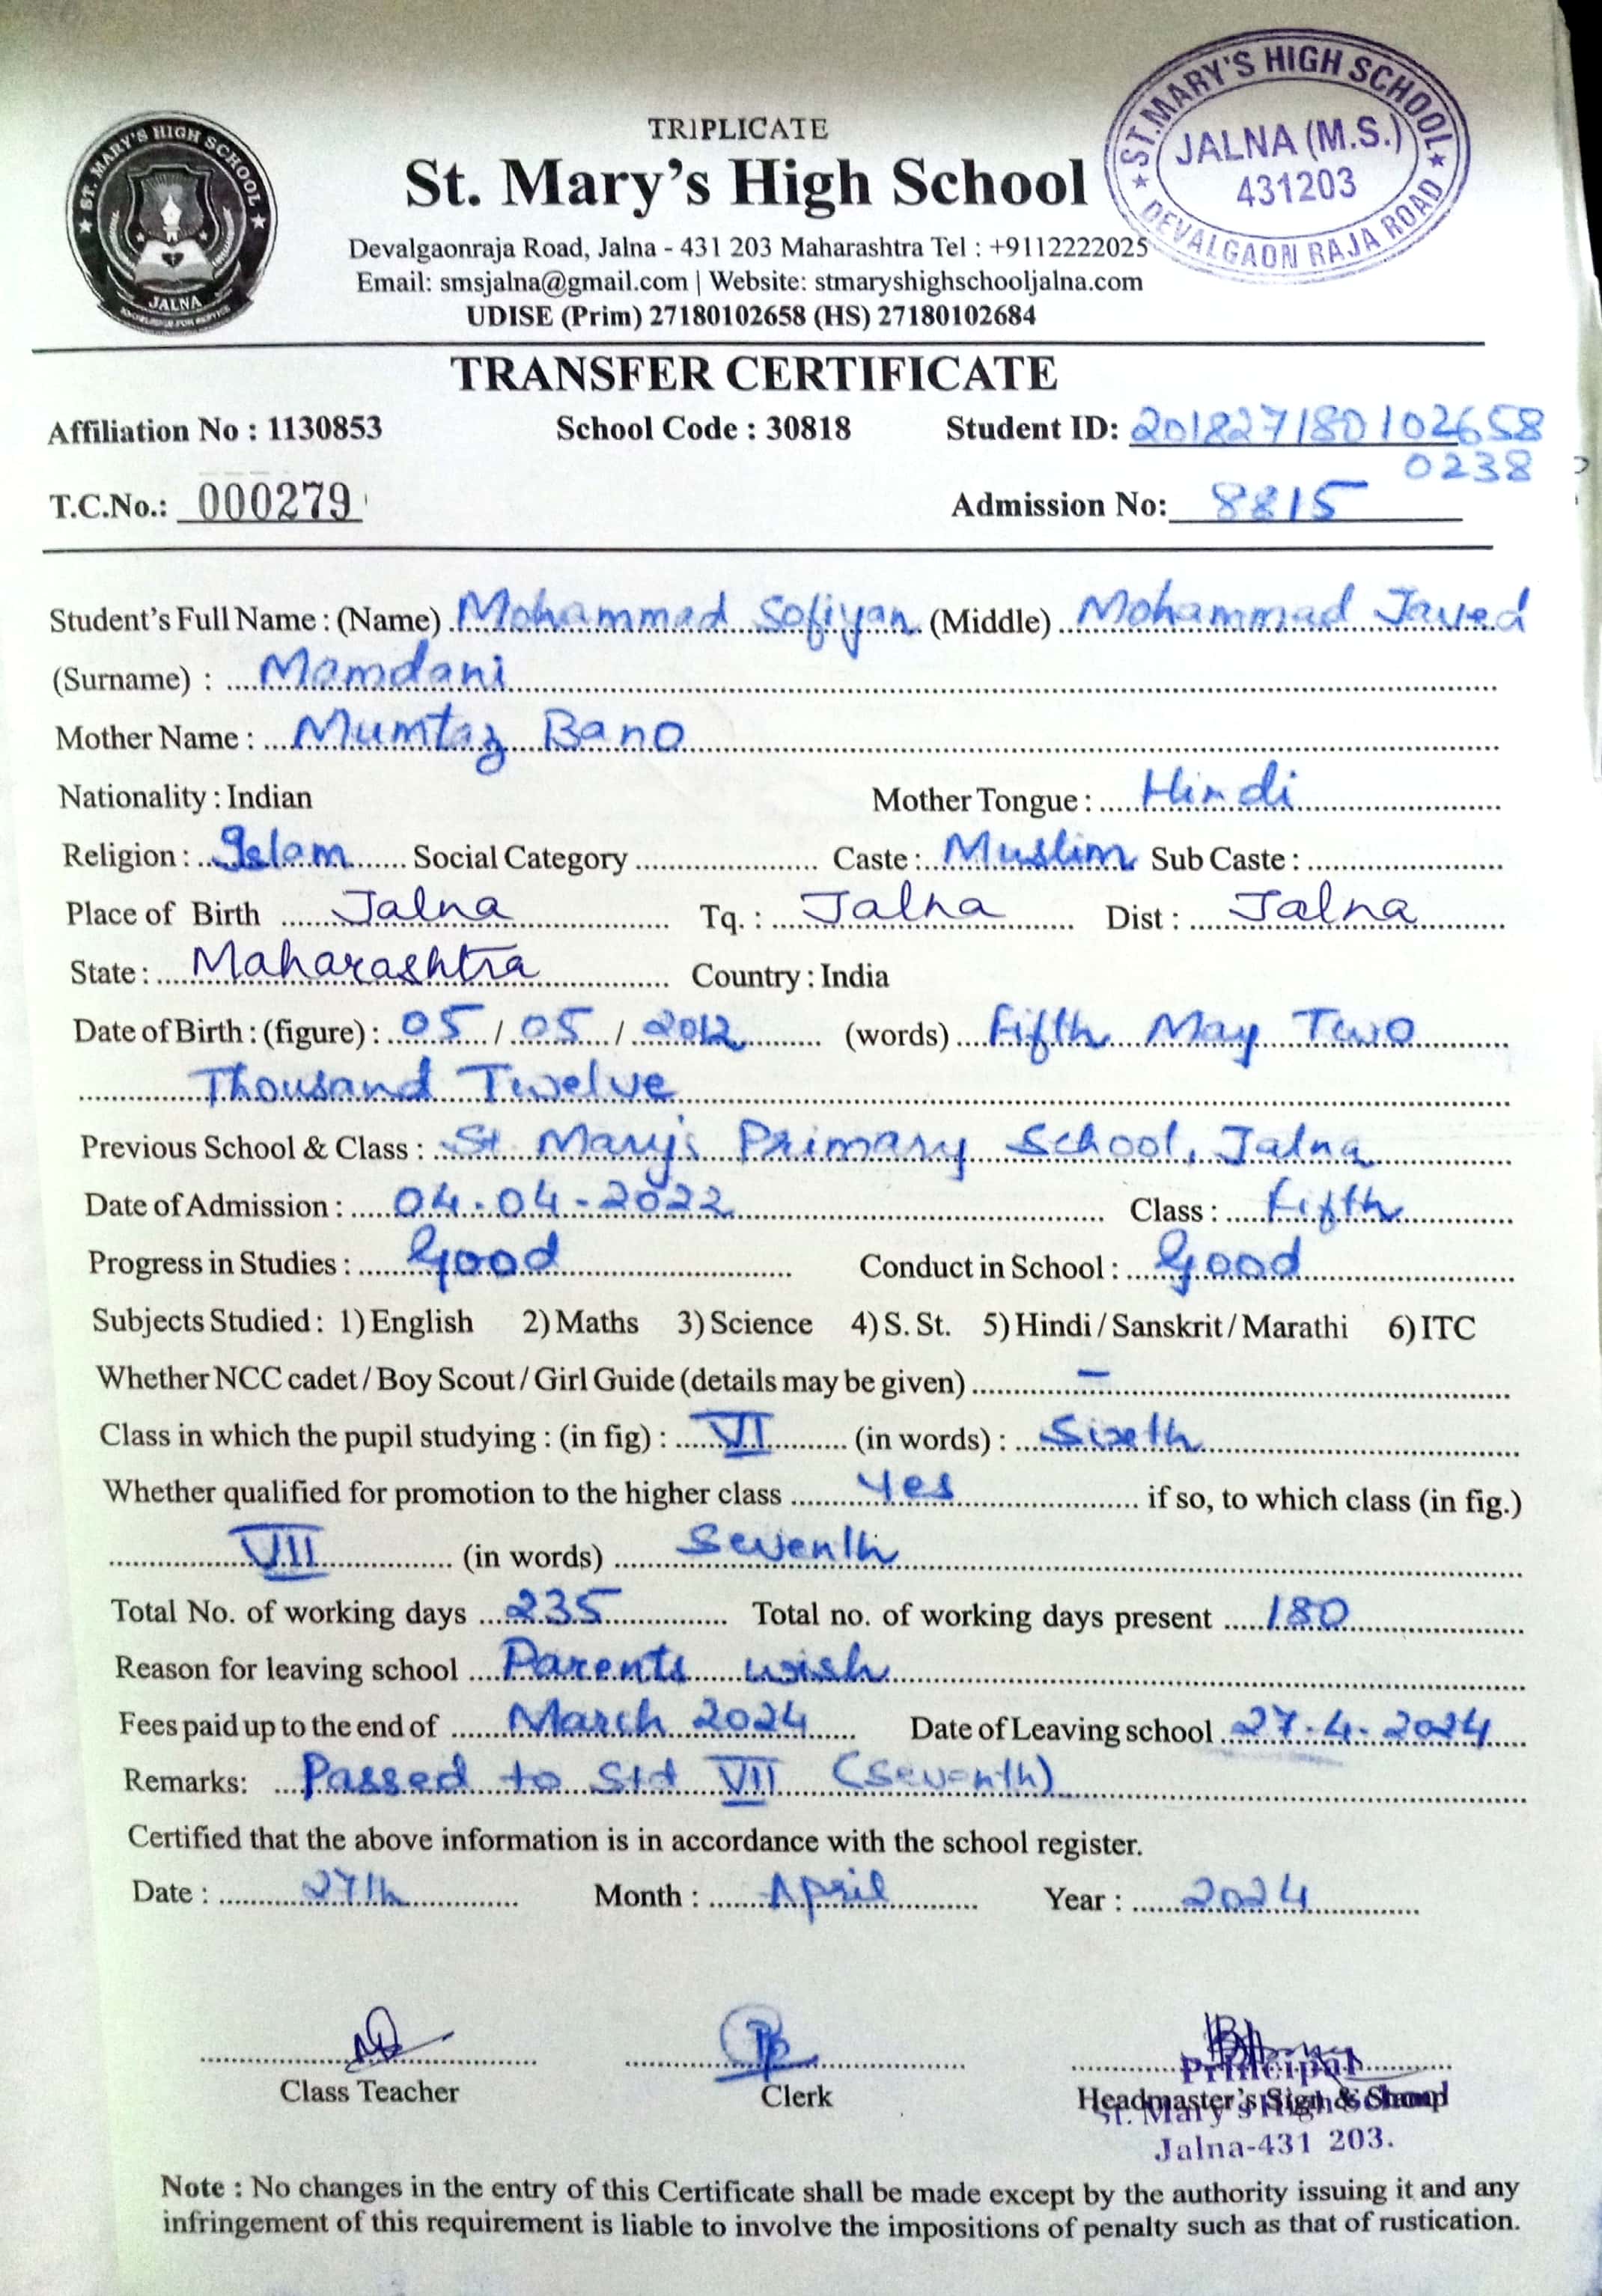 TRIPLICATE
St. Mary's High School
Devalgaonraja Road, Jalna - 431 203 Maharashtra Tel : +9112222025
Email: smsjalna@gmail.com | Website: stmaryshighschooljalna.com
UDISE (Prim) 27180102658 (HS) 27180102684
★ ST. MARY'S HIGH SCHOOL ★
JALNA
ST.MARY'S HIGH SCHOOL
JALNA (M.S.)
431203
★ DEVALGAON RAJA ROAD ★
TRANSFER CERTIFICATE
Affiliation No : 1130853 School Code : 30818 Student ID: 201827180102658
0238
T.C.No.: 000279 Admission No: 8815
Student's Full Name : (Name) Mohammad Sofiyan (Middle) Mohammad Javed
(Surname) : Mamdani
Mother Name : Mumtaz Bano
Nationality : Indian Mother Tongue : Hindi
Religion : Islam Social Category Caste : Muslim Sub Caste :
Place of Birth Jalna Tq. : Jalna Dist : Jalna
State : Maharashtra Country : India
Date of Birth : (figure) : 05 / 05 / 2012 (words) Fifth May Two
Thousand Twelve
Previous School & Class : St. Mary's Primary School, Jalna
Date of Admission : 04-04-2022 Class : Fifth
Progress in Studies : Good Conduct in School : Good
Subjects Studied : 1) English 2) Maths 3) Science 4) S. St. 5) Hindi / Sanskrit / Marathi 6) ITC
Whether NCC cadet / Boy Scout / Girl Guide (details may be given) —
Class in which the pupil studying : (in fig) : VI (in words) : Sixth
Whether qualified for promotion to the higher class Yes if so, to which class (in fig.)
VII (in words) Seventh
Total No. of working days 235 Total no. of working days present 180
Reason for leaving school Parents wish
Fees paid up to the end of March 2024 Date of Leaving school 27-4-2024
Remarks: Passed to Std VII (Seventh)
Certified that the above information is in accordance with the school register.
Date : 27th Month : April Year : 2024
Class Teacher Clerk Headmaster's Sign & Stamp
Principal
St. Mary's High School
Jalna-431 203.
Note : No changes in the entry of this Certificate shall be made except by the authority issuing it and any
infringement of this requirement is liable to involve the impositions of penalty such as that of rustication.